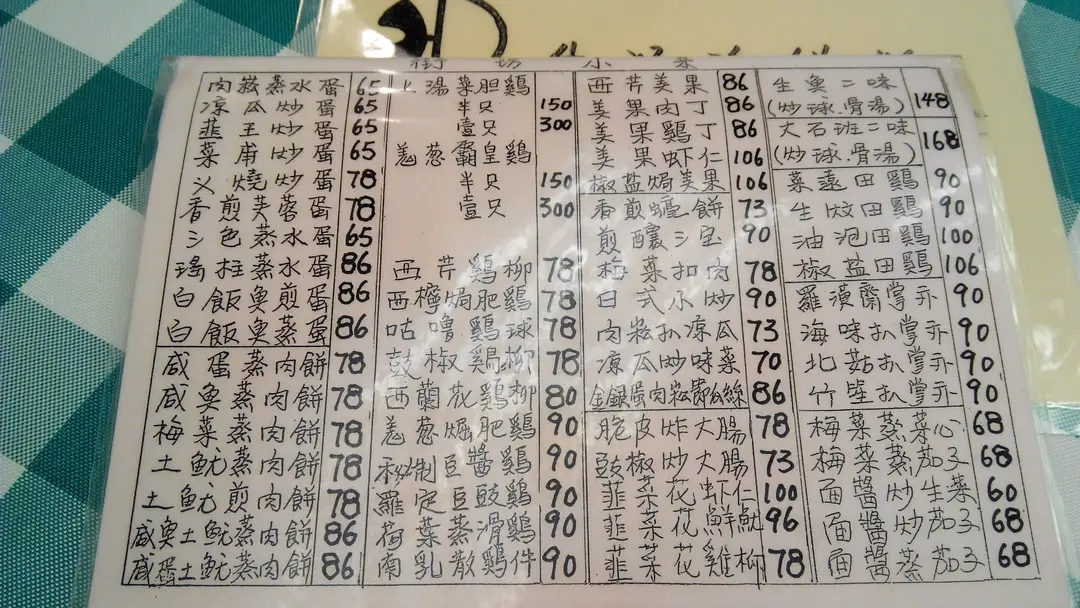 街坊小菜
肉崧蒸水蛋 65
凉瓜炒蛋 65
韮王炒蛋 65
菜甫炒蛋 65
义燒炒蛋 78
香煎芙蓉蛋 78
三色蒸水蛋 65
瑤柱蒸水蛋 86
白飯魚煎蛋 86
白飯魚蒸蛋 86
咸蛋蒸肉餅 78
咸魚蒸肉餅 78
梅菜蒸肉餅 78
土魷蒸肉餅 78
土魷煎肉餅 78
咸魚土魷蒸肉餅 86
咸蛋土魷蒸肉餅 86
上湯菜胆鷄
半只 150
壹只 300
羌葱霸皇鷄
半只 150
壹只 300
西芹鷄柳 78
西檸焗肥鷄 78
咕嚕鷄球 78
鼓椒鷄柳 78
西蘭花鷄柳 80
羌葱焗肥鷄 90
秘制豆醬鷄 90
羅定豆豉鷄 90
荷葉蒸滑鷄 90
南乳散鷄件 90
西芹美果 86
美果肉丁 86
美果鷄丁 86
美果虾仁 106
椒盐焗美果 106
香煎蠔餅 73
煎釀三宝 90
梅菜扣肉 78
日式小炒 90
肉崧扒凉瓜 73
凉瓜炒味菜 70
金銀蛋肉崧節瓜絲 86
脆皮炸大腸 78
豉椒炒大腸 73
韮菜花虾仁 100
韮菜花鮮魷 96
韮菜花雞柳 78
生魚二味
(炒球.骨湯) 148
大石班二味
(炒球.骨湯) 168
菜遠田鷄 90
生炆田鷄 90
油泡田鷄 100
椒盐田鷄 106
羅漢齋掌亓 90
海味扒掌亓 90
北菇扒掌亓 90
竹笙扒掌亓 90
梅菜蒸菜心 68
梅菜蒸茄子 68
面醬炒生菜 60
面醬炒茄子 68
面醬蒸茄子 68